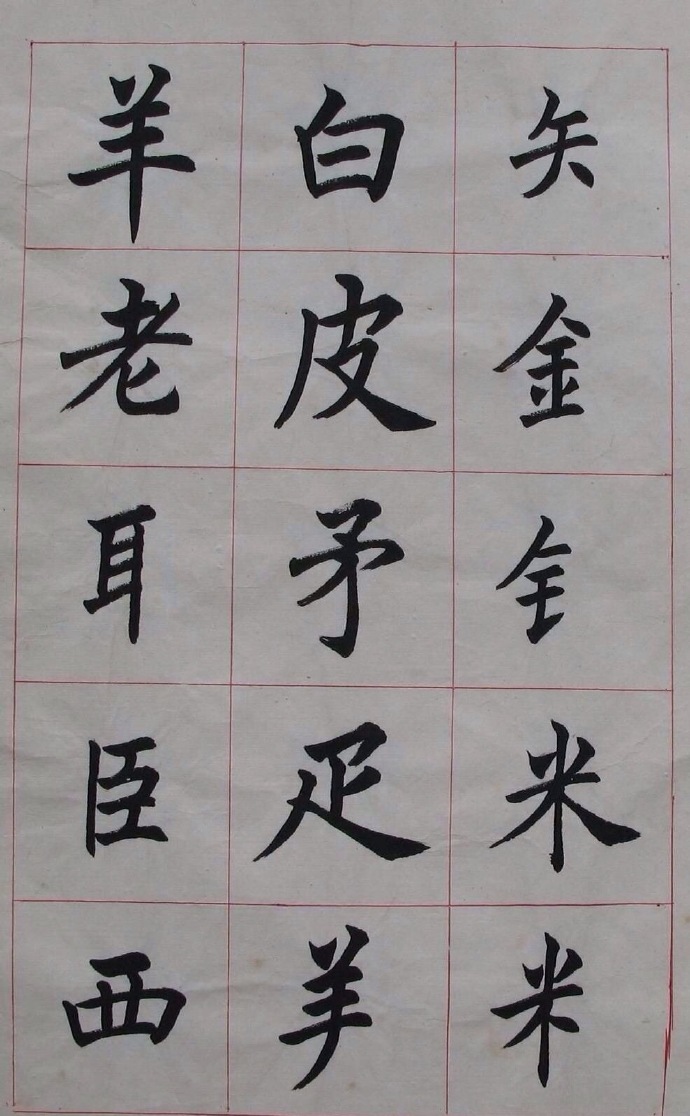 矢金釒米米
白皮矛疋⺶
羊老耳臣西